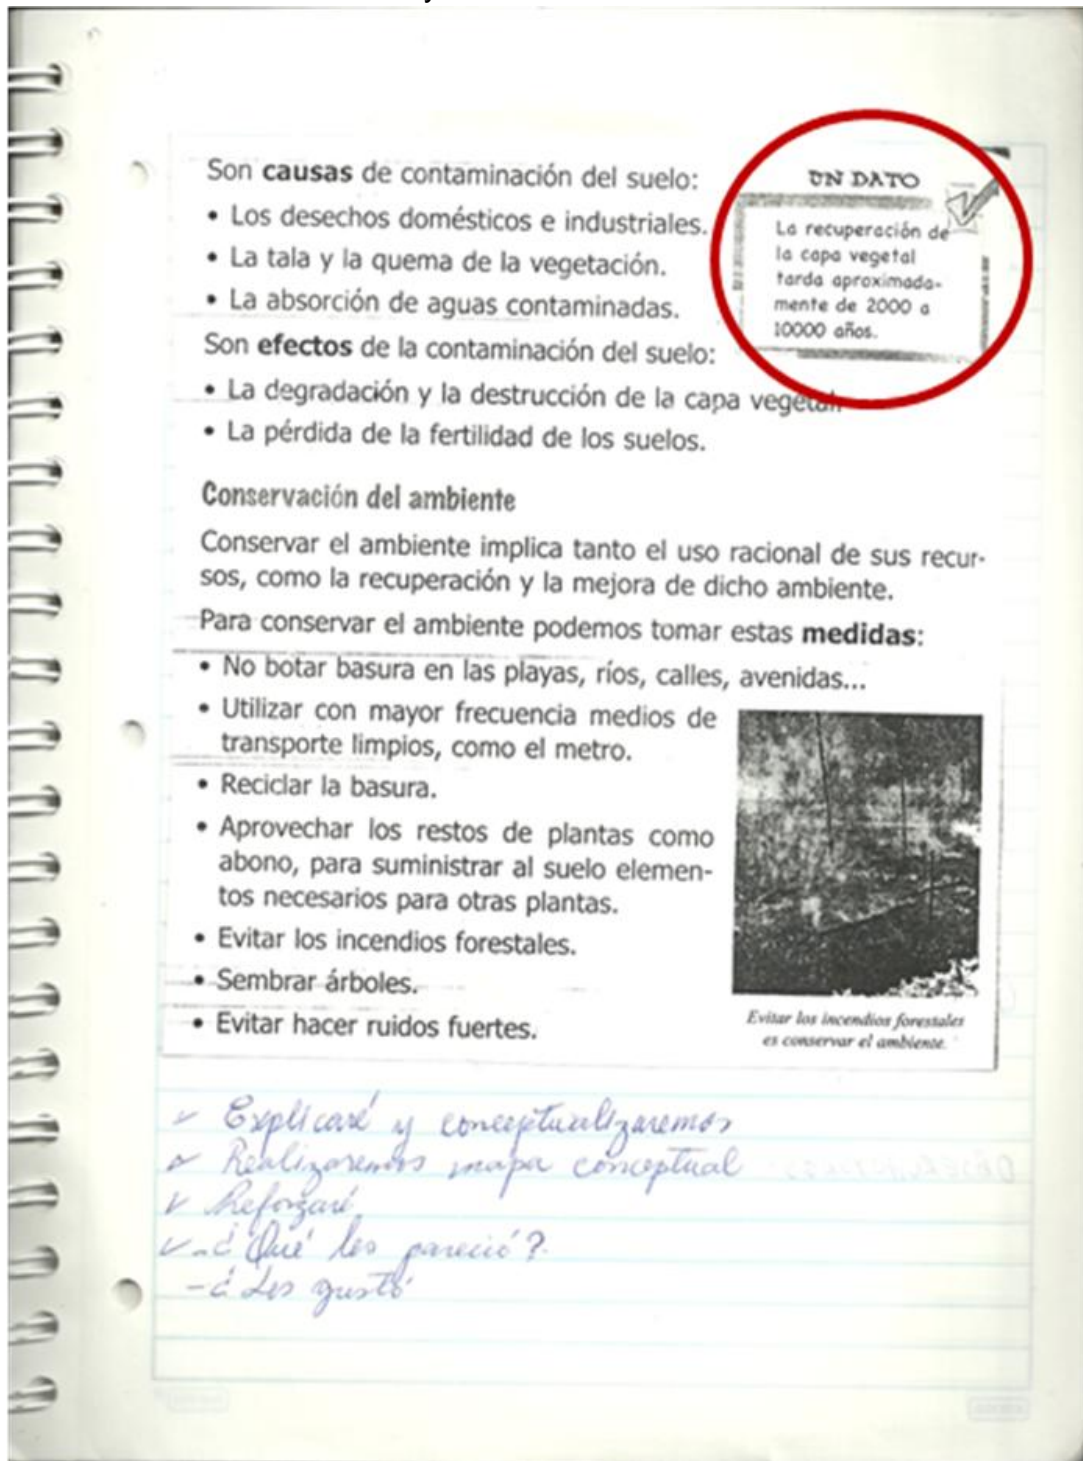 Son causas de contaminación del suelo:
• Los desechos domésticos e industriales.
• La tala y la quema de la vegetación.
• La absorción de aguas contaminadas.
Son efectos de la contaminación del suelo:
• La degradación y la destrucción de la capa vegetal.
• La pérdida de la fertilidad de los suelos.
UN DATO
La recuperación de
la capa vegetal
tarda aproximada-
mente de 2000 a
10000 años.
Conservación del ambiente
Conservar el ambiente implica tanto el uso racional de sus recur-
sos, como la recuperación y la mejora de dicho ambiente.
Para conservar el ambiente podemos tomar estas medidas:
• No botar basura en las playas, ríos, calles, avenidas...
• Utilizar con mayor frecuencia medios de
transporte limpios, como el metro.
• Reciclar la basura.
• Aprovechar los restos de plantas como
abono, para suministrar al suelo elemen-
tos necesarios para otras plantas.
• Evitar los incendios forestales.
• Sembrar árboles.
• Evitar hacer ruidos fuertes.
Evitar los incendios forestales
es conservar el ambiente.
✓ Explicaré y conceptualizaremos
✓ Realizaremos mapa conceptual
✓ Reforzaré
✓ - ¿Qué les pareció?
- ¿Les gustó